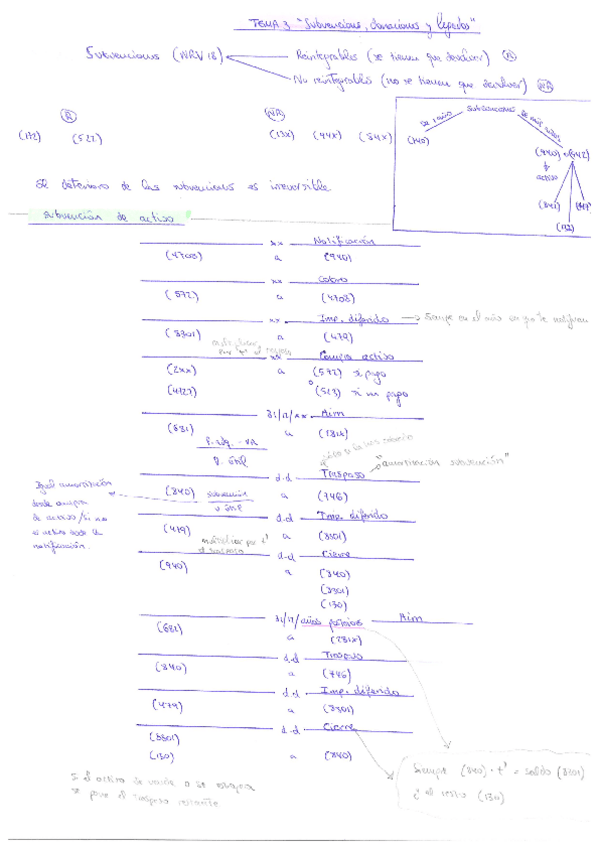 TEMA 3 "Subvenciones, donaciones y legados"
Subvenciones (NRV 18)
Reintegrables (se tienen que devolver) (R)
No reintegrables (no se tienen que devolver) (NR)
(R)
(NR)
(172) (522)
(13x) (94x) (84x)
subvenciones
de 1 año
de más años
(740)
(940) o (542)
activo
El deterioro de las subvenciones es irreversible
Subvención de activo
xx Notificación
(4708) a (940)
xx Cobro
(572) a (4708)
xx Imp. diferido → Siempre en el año en que te notifican
(8301) a (479)
xx Compra activo
(2xx) a (572) si pago
(472) o (523) si no pago
31/12/xx Aim
(681) a (281x)
d.d Traspaso
"amortización subvención"
(840) subvención a (746)
v. útil
Igual amortización
desde compra
de activo / si no
es activo desde la
notificación.
d.d Imp. diferido
(479) a (8301)
multiplicar por t'
d.d Cierre
(940) a (840)
(8301)
(130)
31/12/ años posteriores Aim
(681) a (281x)
d.d Traspaso
(840) a (746)
d.d Imp. diferido
(479) a (8301)
d.d Cierre
(8301)
(130) a (840)
Siempre (840) · t' = saldo (8301)
y el resto (130)
Si el activo se vende o se estropea
se pone el traspaso restante